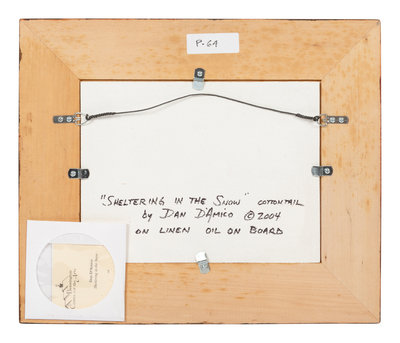 P-64
"SHELTERING IN THE SNOW" COTTONTAIL
by DAN D'AMICO © 2004
ON LINEN OIL ON BOARD